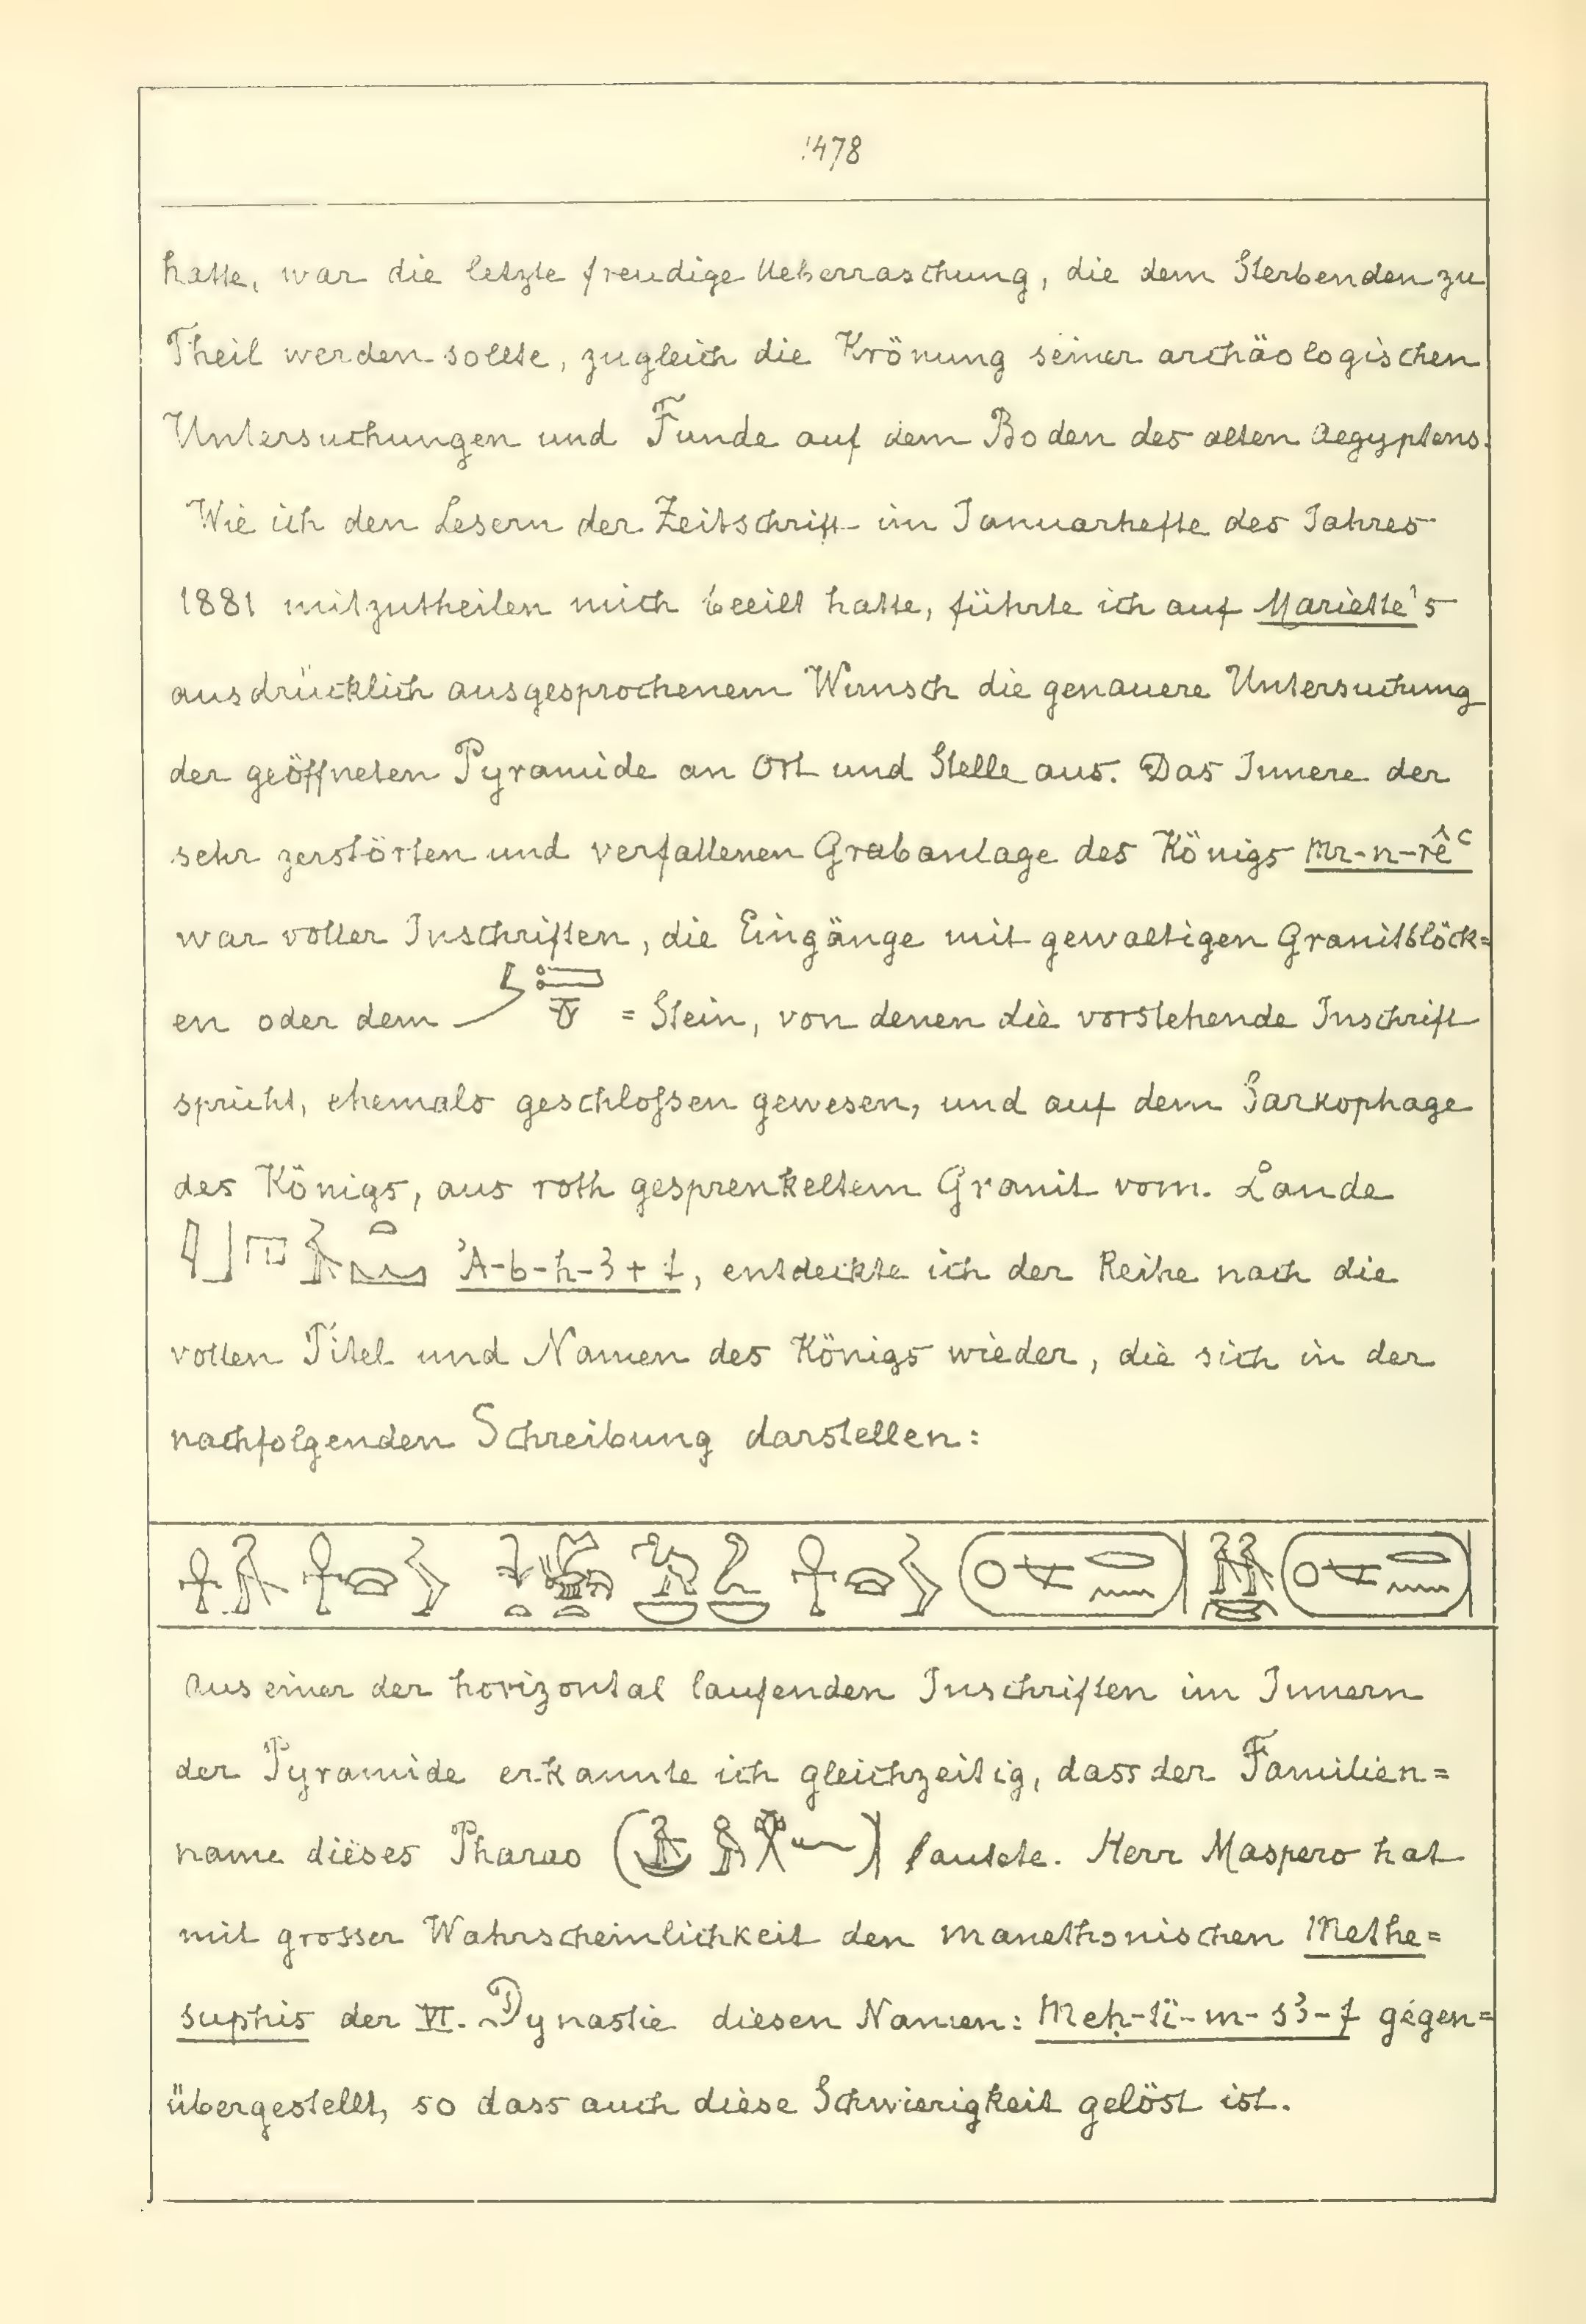 1478
hatte, war die letzte freudige Ueberraschung, die dem Sterbenden zu
Theil werden sollte, zugleich die Krönung seiner archäologischen
Untersuchungen und Funde auf dem Boden des alten Aegyptens.
Wie ich den Lesern der Zeitschrift im Januarhefte des Jahres
1881 mitzutheilen mich beeilt hatte, führte ich auf Mariette's
ausdrücklich ausgesprochenem Wunsch die genauere Untersuchung
der geöffneten Pyramide an Ort und Stelle aus. Das Innere der
sehr zerstörten und verfallenen Grabanlage des Königs Mr-n-rêʿ
war voller Inschriften, die Eingänge mit gewaltigen Granitblöck=
en oder dem = Stein, von denen die vorstehende Inschrift
spricht, ehemals geschloſsen gewesen, und auf dem Sarkophage
des Königs, aus roth gesprenkeltem Granit vom Lande
ʾA-b-h-3+t, entdeckte ich der Reihe nach die
vollen Titel und Namen des Königs wieder, die sich in der
nachfolgenden Schreibung darstellen:
Aus einer der horizontal laufenden Inschriften im Innern
der Pyramide erkannte ich gleichzeitig, dass der Familien=
name dieses Pharao ( ) lautete. Herr Maspero hat
mit grosser Wahrscheinlichkeit den manethonischen Methe=
suphis der VI. Dynastie diesen Namen: Meḥ-tï-m-s3-f gegen=
übergestellt, so dass auch diese Schwierigkeit gelöst ist.